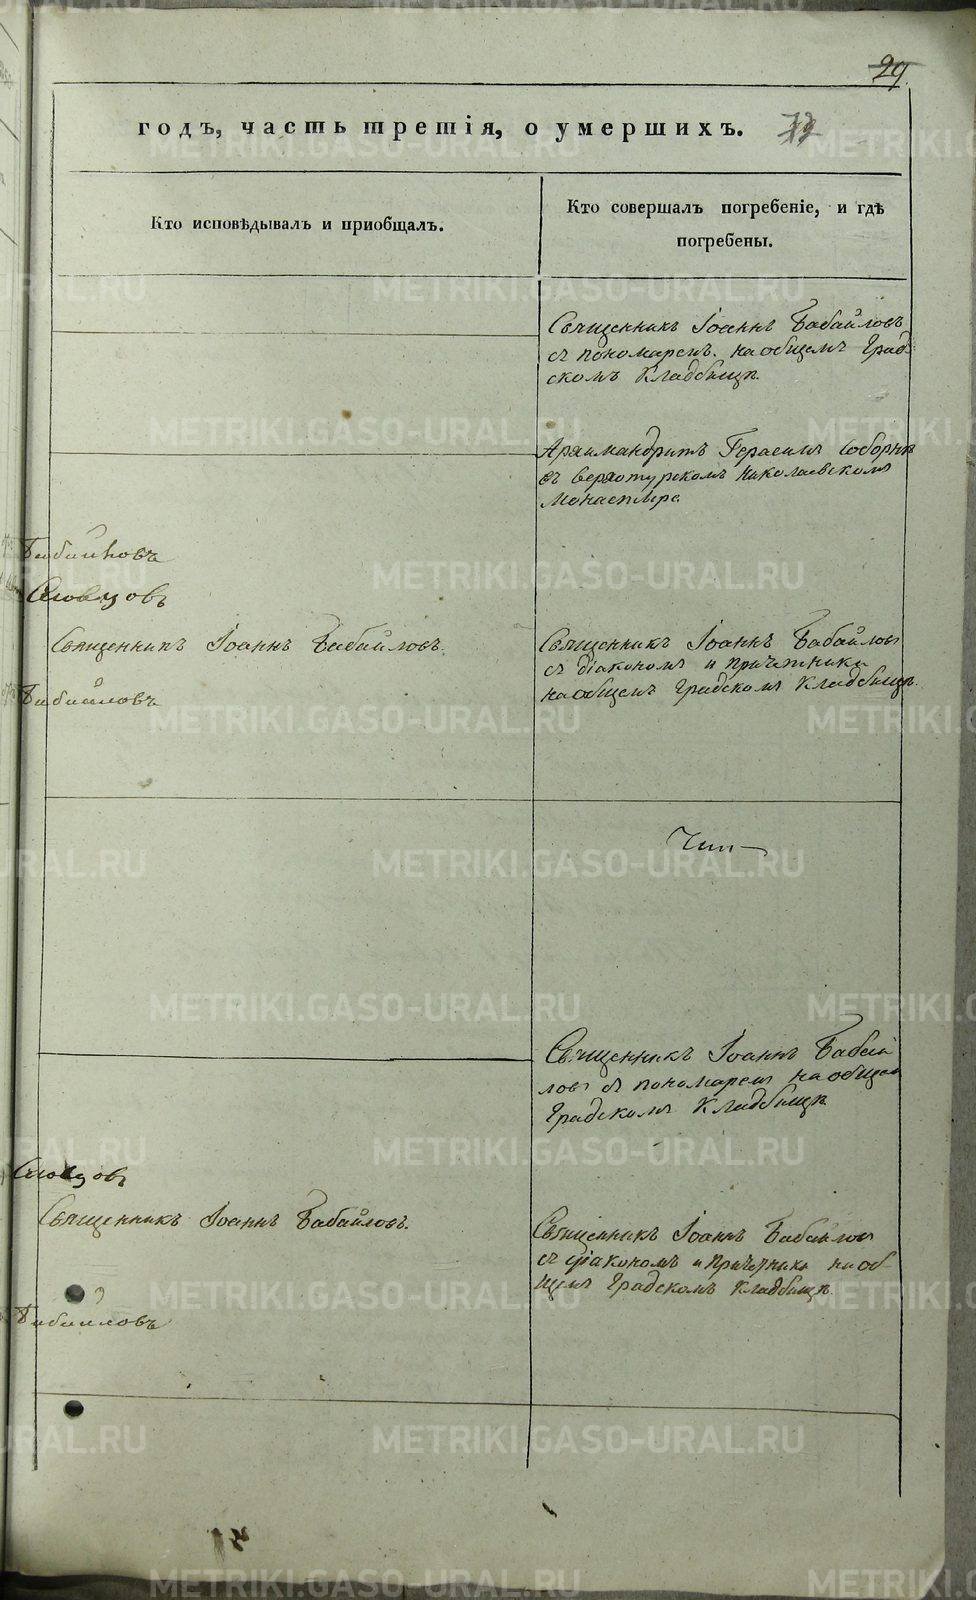 29
годъ, часть третія, о умершихъ.
Кто исповѣдывалъ и приобщалъ.
Кто совершалъ погребеніе, и гдѣ
погребены.
Священникъ Іоаннъ Бабайловъ
съ пономаремъ на общемъ Град
скомъ Кладбищѣ.
Архимандритъ Герасимъ соборнѣ
въ Верхотурскомъ Николаевскомъ
Монастырѣ
Бабайловъ
Словцовъ
Священникъ Іоаннъ Бабайловъ.
Священникъ Іоаннъ Бабайловъ
съ діакономъ и причетники
на общемъ Градскомъ Кладбищѣ.
Бабайловъ
Священникъ Іоаннъ Бабай
ловъ съ пономаремъ на общем
Градскомъ Кладбищѣ
Словцовъ
Священникъ Іоаннъ Бабайловъ.
Священникъ Іоаннъ Бабайловъ
съ діакономъ и причетники на об
щемъ Градскомъ Кладбищѣ.
Бабайловъ
METRIKI.GASO-URAL.RU